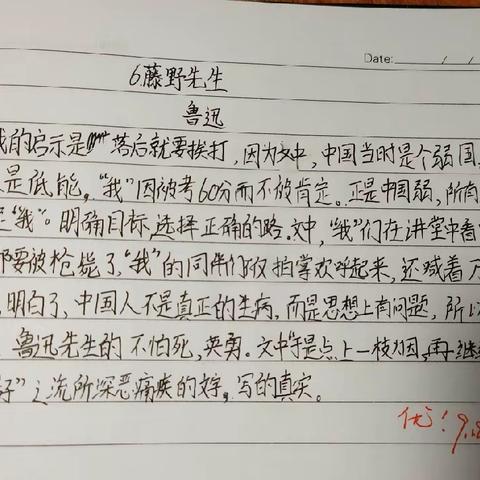 Date: / /
6.藤野先生
鲁迅
我的启示是落后就要挨打,因为文中,中国当时是个弱国
是低能,“我”因被考60分而不放肯定。正是中国弱,所有
“我”。明确目标,选择正确的路。文中,“我”们在讲堂中看
要被枪毙了“我”的同伴们仅拍掌欢呼起来,还喊着万
,明白了,中国人不是真正的生病,而是思想上有问题,所以
鲁迅先生的不怕死,英勇。文中“于是点上一枝烟,再继续
”之流所深恶痛疾的文字,写的真实。
优!9.18